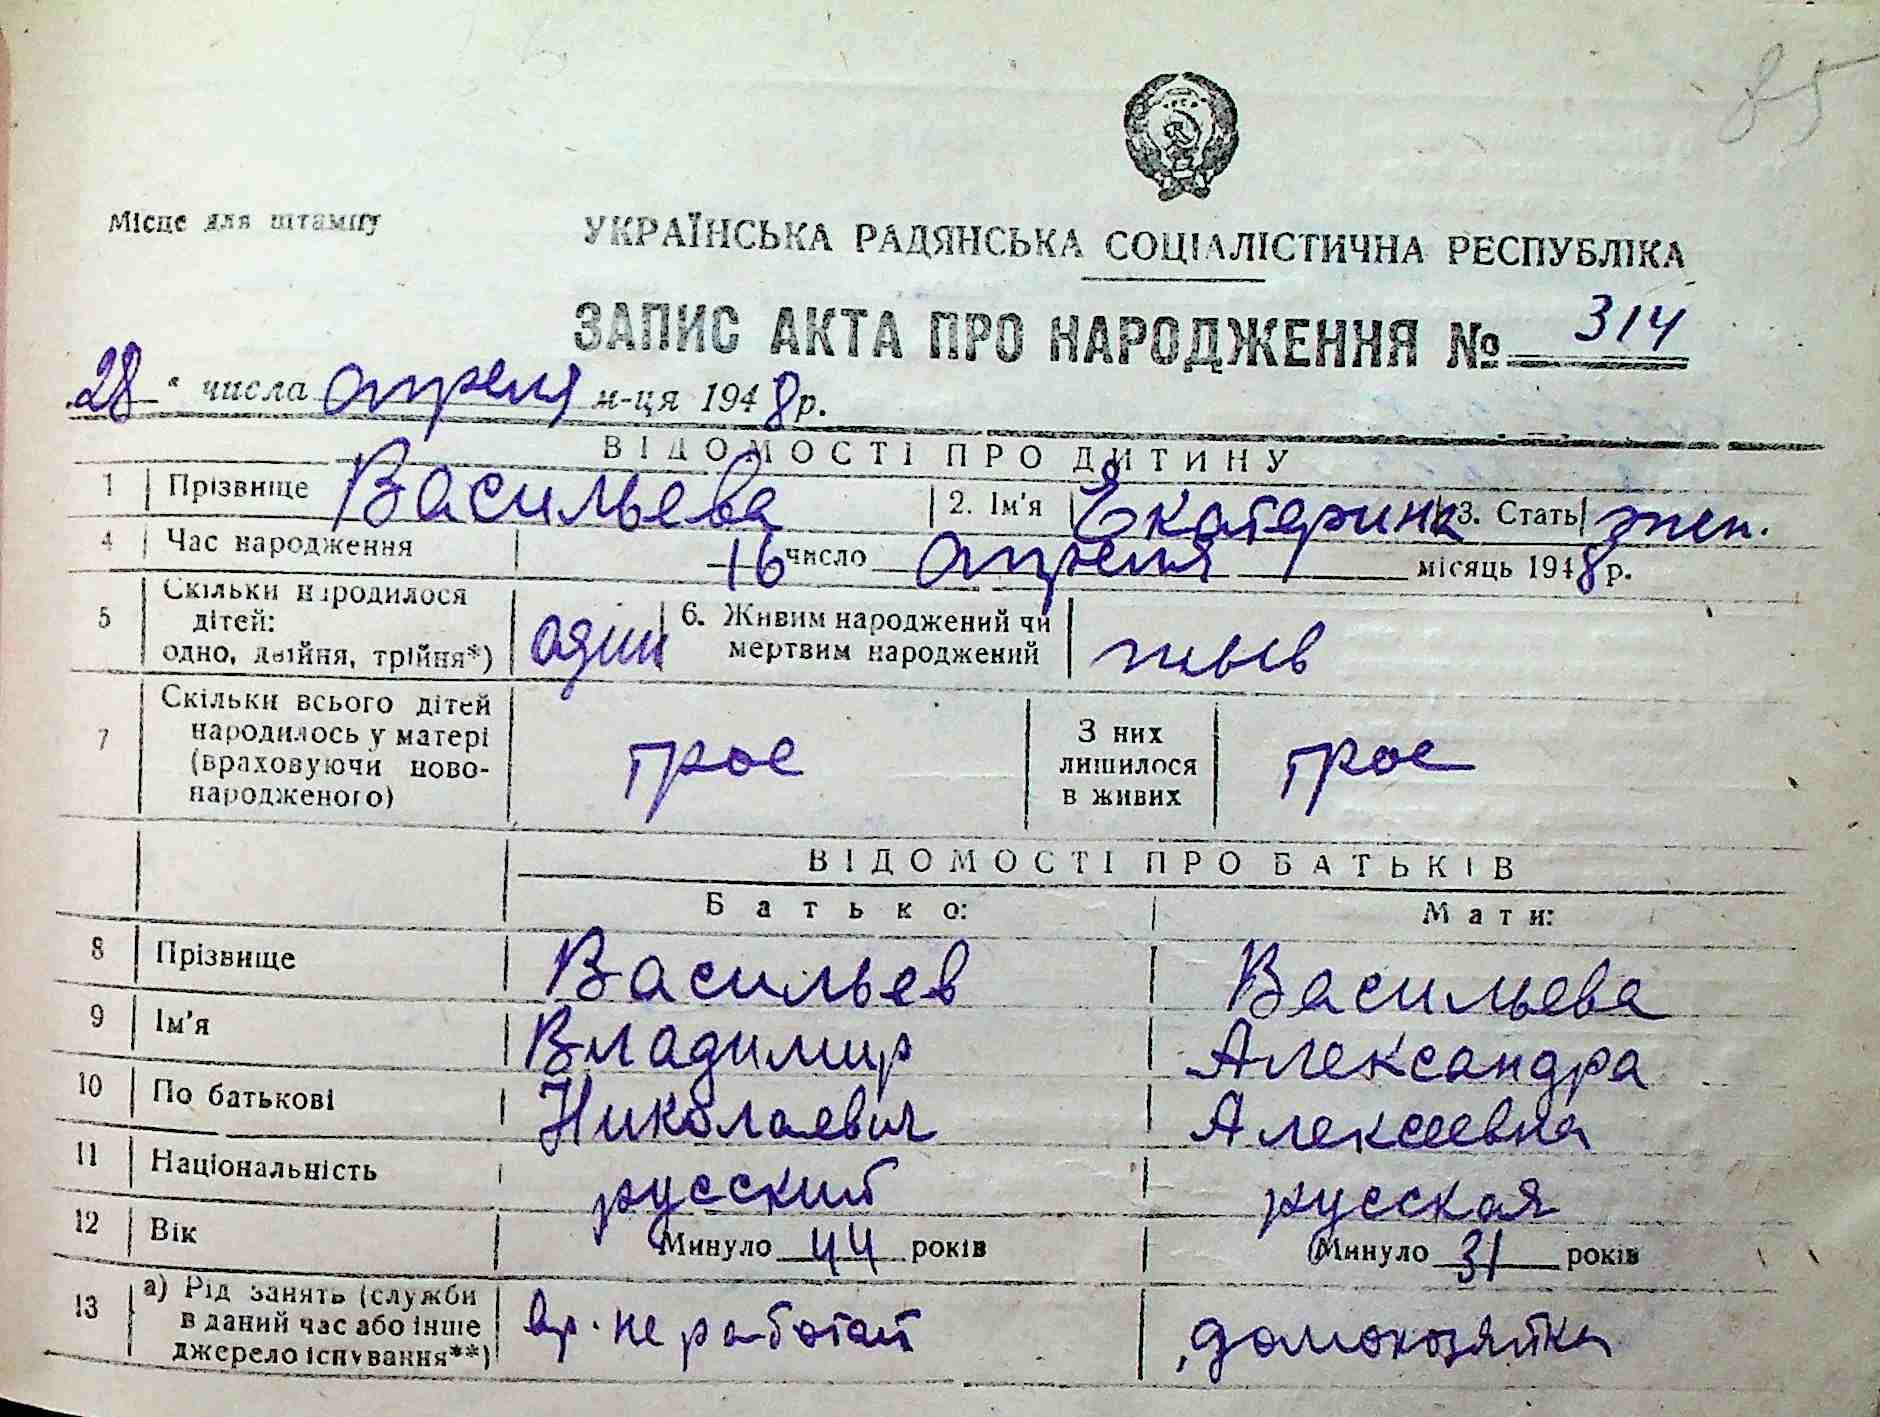 85
Місце для штампу
УКРАЇНСЬКА РАДЯНСЬКА СОЦІАЛІСТИЧНА РЕСПУБЛІКА
ЗАПИС АКТА ПРО НАРОДЖЕННЯ № 314
28 числа апреля м-ця 1948 р.
ВІДОМОСТІ ПРО ДИТИНУ
1 Прізвище Васильева 2. Ім'я Екатерина 3. Стать жен.
4 Час народження 16 число апреля місяць 1948 р.
5 Скільки народилося дітей: одно, двійня, трійня*) один 6. Живим народжений чи мертвим народжений
7 Скільки всього дітей народилось у матері (враховуючи ново-народженого) трое З них лишилося в живих трое
ВІДОМОСТІ ПРО БАТЬКІВ
Батько: Мати:
8 Прізвище Васильев Васильева
9 Ім'я Владимир Александра
10 По батькові Николаевич Алексеевна
11 Національність русский русская
12 Вік Минуло 44 років Минуло 31 років
13 а) Рід занять (служби в даний час або інше джерело існування**) вр. не работает домохозяйка